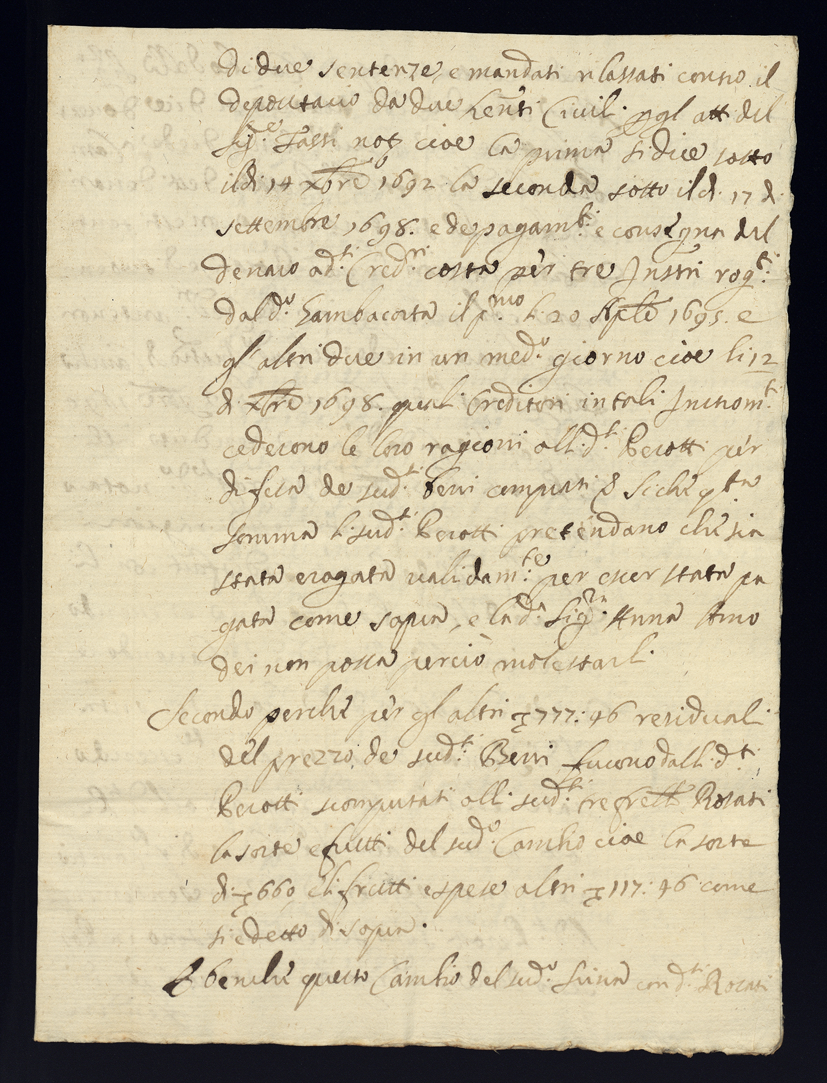 di due sentenze, e mandati rilassati contro il
depositario da due Centi Civili p gl att del
Sig.re Fassi not. cioe la prima si dice sotto
il di 14 Xbre 1692. la seconda sotto il di 17 di
settembre 1698. e de pagam.ti e consegna del
denaro a d.ti Cred.ri costa per tre Instri rog.ti
dal d.o Gambacorta il p.mo li 20 Aple 1695. e
gl'altri due in un med.o giorno cioe li 12
di Xbre 1698. quali Creditori in tali Instrom.ti
cederono le loro ragioni alli d.ti Perotti per
difesa de sud.ti beni comprati & Siche q.ta
somma li sud.ti Perotti pretendano che sia
stata erogata validam.te per esser stata pa
gata come sopra, e la d.a Sig.ra Anna Amo
dei non possa perciò molestarli.
Secondo perche per gl'altri ∇777:46 residuali
del prezzo de sud.ti Beni furono dalli d.ti
Perotti scomputati alli sud.ti tre fretti Rosati
la sorte e frutti del sud.o Cambio cioe la sorte
di ∇660 e li frutti e spese altri ∇117:46 come
si e detto di sopra.
E benche questo Cambio del sud.o con d.ti Rosati